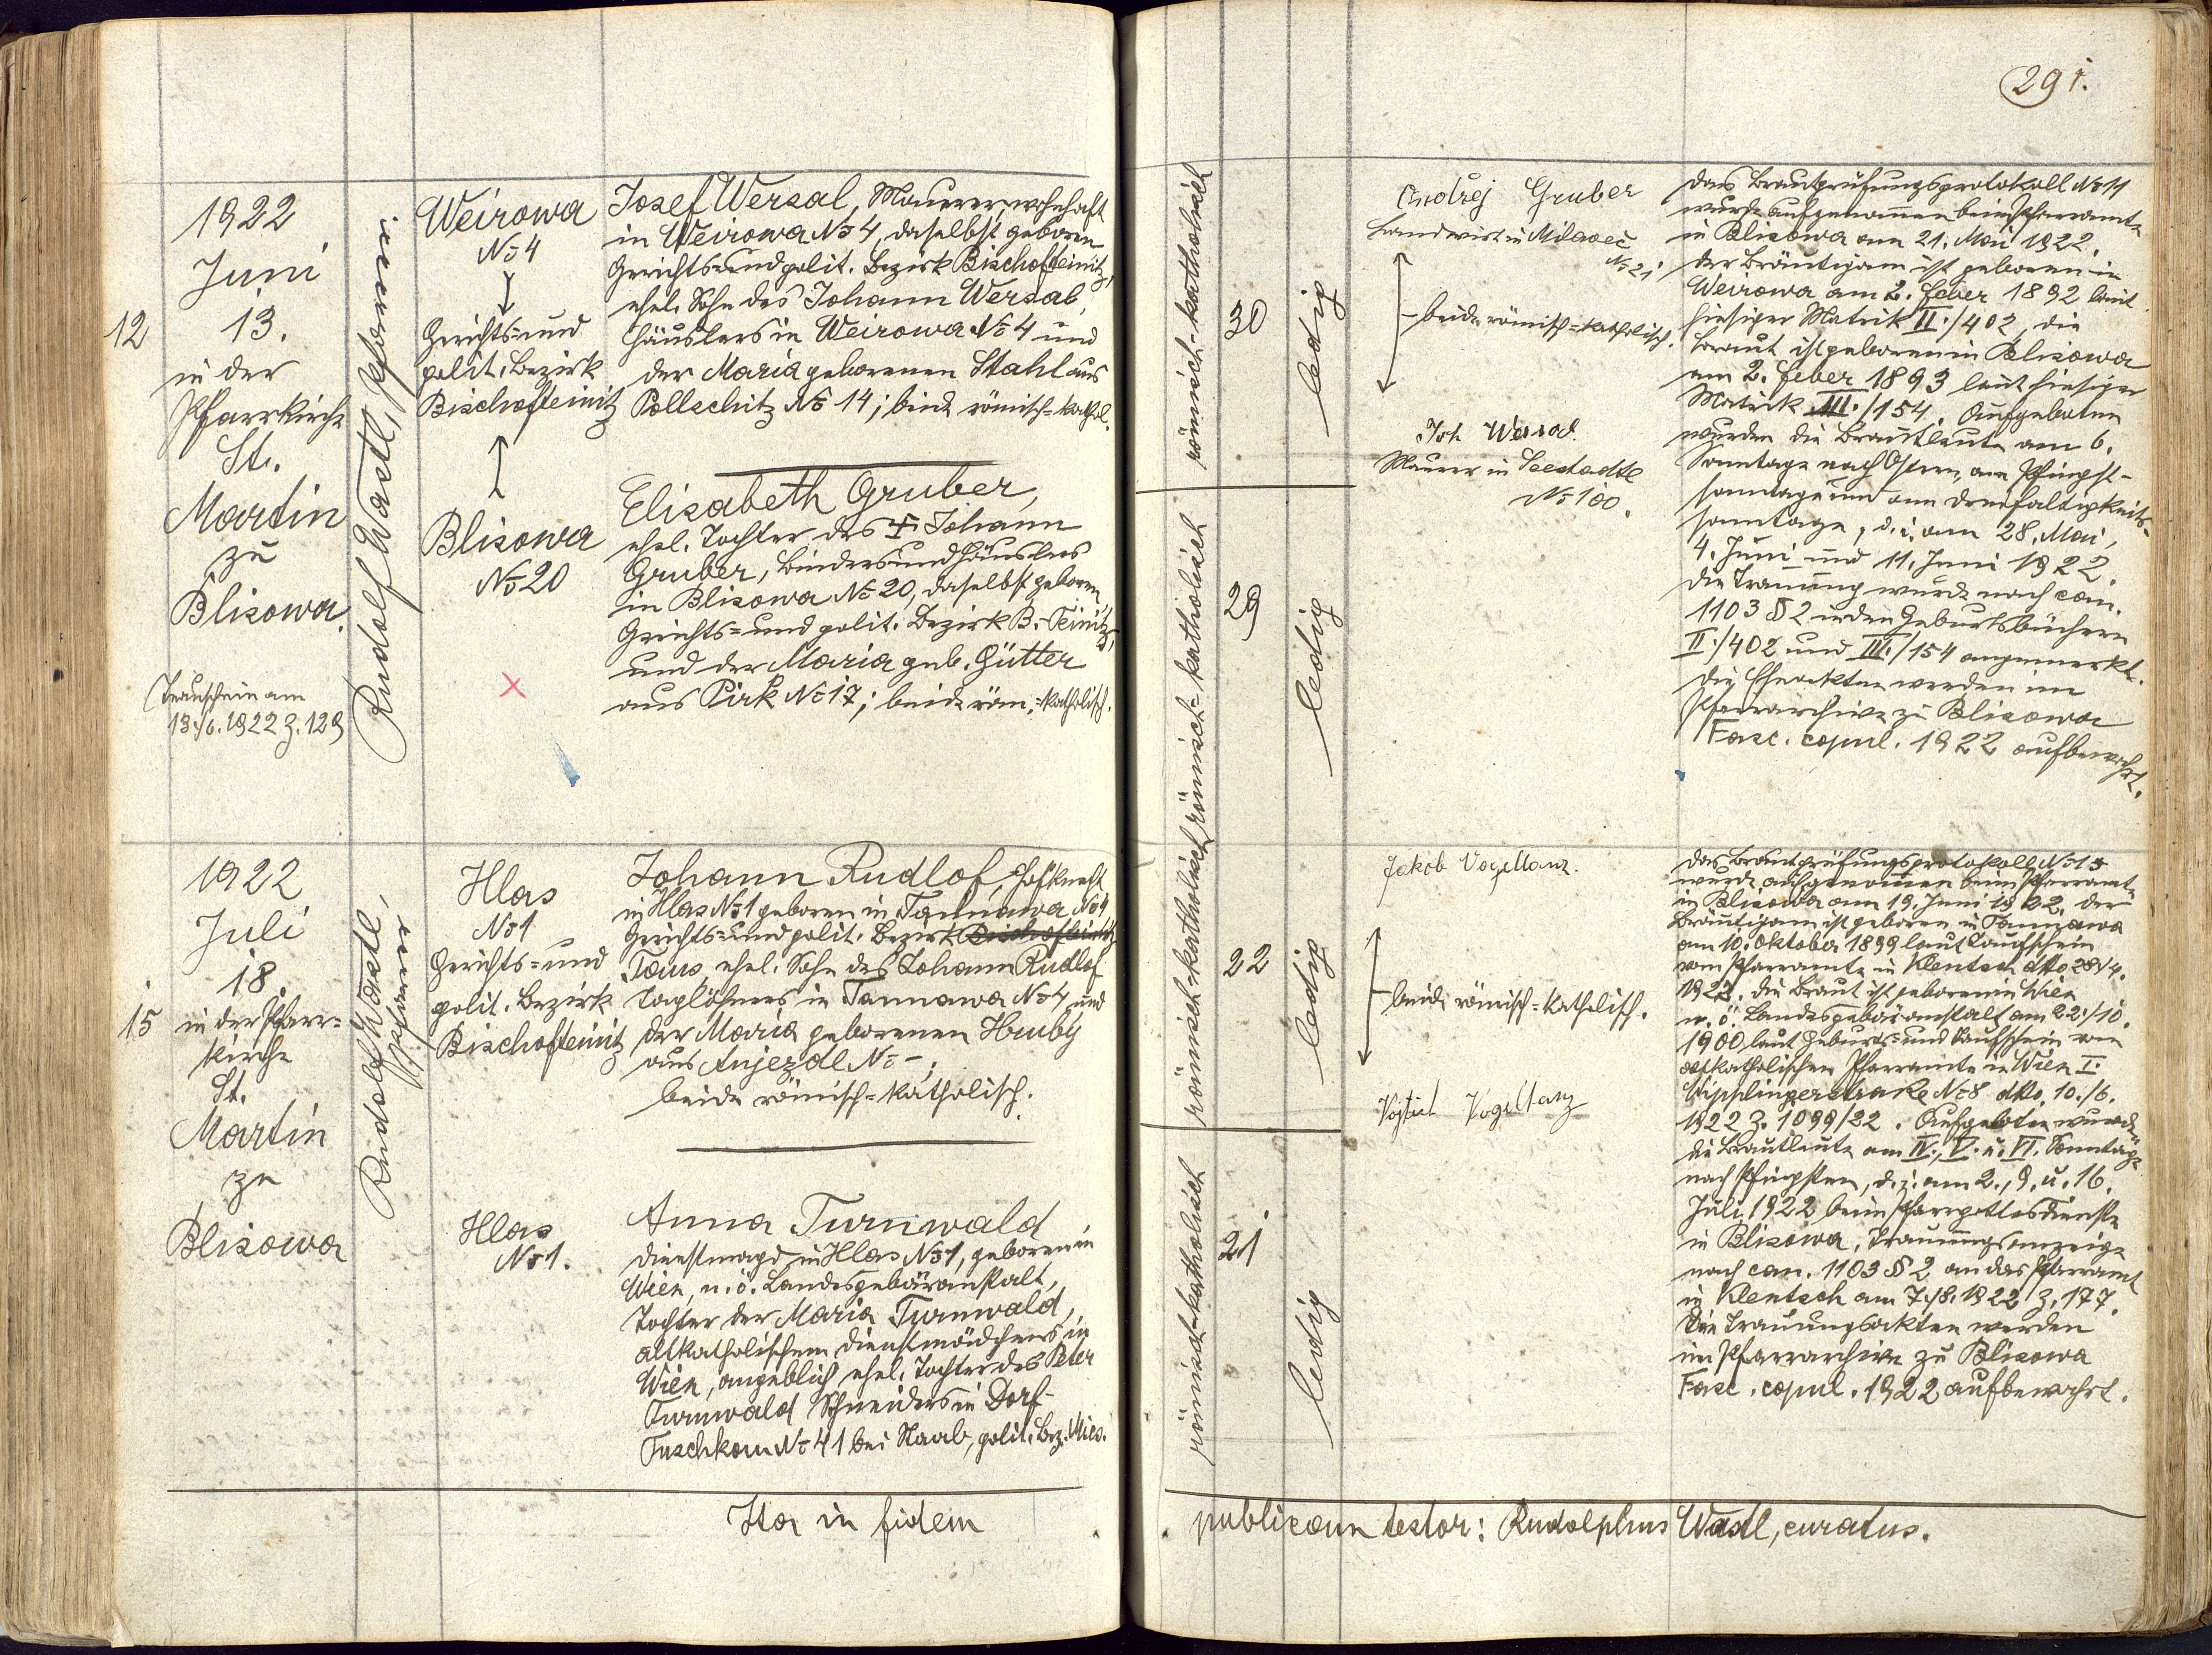 291.
12
1922
Juni
13.
in der
Pfarrkirche
St.
Martin
zu
Blisowa.
Trauschein am
13./6. 1922 Z. 129
Rudolf Wastl, Pfarrer
Weirowa
No 4
Gerichts- und
polit. Bezirk
Bischofteinitz
Blisowa
No 20
Josef Wersal, Maurer, wohnhaft
in Weirowa No 4, daselbst geboren
Gerichts- und polit. Bezirk Bischofteinitz,
ehel. Sohn des Johann Wersal,
Häuslers in Weirowa No 4 und
der Maria geborenen Stahl aus
Pollschitz No 14; beide römisch-kathol.
Elisabeth Gruber,
ehel. Tochter des † Johann
Gruber, Binders und Häuslers
in Blisowa No 20, daselbst geboren,
Gerichts- und polit. Bezirk B.-Teinitz,
und der Maria geb. Hütter
aus Pirk No 17; beide röm.-katholisch.
römisch-katholisch
30
ledig
römisch-katholisch
29
ledig
Ondřej Gruber
Landwirt in Milaveč
No 21
beide römisch-katholisch.
Joh Wersal.
Maurer in Seestadtl
No 100.
Das Brautprüfungsprotokoll No 11
wurde aufgenommen beim Pfarramte
in Blisowa am 21. Mai 1922.
Der Bräutigam ist geboren in
Weirowa am 2. Feber 1892 laut
hiesiger Matrik II./402, die
Braut ist geboren in Blisowa
am 2. Feber 1893 laut hiesiger
Matrik III./154. Aufgeboten
wurden die Brautleute am 6.
Sonntage nach Ostern, am Pfingst-
sonntage und am Dreifaltigkeits-
sonntage, d. i. am 28. Mai,
4. Juni und 11. Juni 1922.
Die Trauung wurde nach can.
1103 § 2 in den Geburtsbüchern
II./402 und III./154 angemerkt.
Die Eheakten werden im
Pfarrarchive zu Blisowa
Fasc. copul. 1922 aufbewahrt.
15
1922
Juli
18.
in der Pfarr-
kirche
St.
Martin
zu
Blisowa
Rudolf Wastl,
Pfarrer
Hlas
No 1
Gerichts- und
polit. Bezirk
Bischofteinitz
Hlas
No 1.
Johann Rudlof, Hofknecht
in Hlas No 1 geboren in Tannawa No 4
Gerichts- und polit. Bezirk Bischofteinitz
Taus, ehel. Sohn des Johann Rudlof
Taglöhners in Tannawa No 4 und
der Maria geborenen Hruby
aus Anjezdl No -;
beide römisch-katholisch.
Anna Turnwald
Dienstmagd in Hlas No 1, geboren in
Wien, n. ö. Landesgebäranstalt,
Tochter der Maria Turnwald,
altkatholischen Dienstmädchens in
Wien, angeblich ehel. Tochter des Peter
Turnwald Schneiders in Dorf-
Tuschkau No 41 bei Staab, polit. Bez. Mies.
römisch-katholisch
22
ledig
römisch-katholisch
21
ledig
Jakob Vogeltanz.
beide römisch-katholisch.
Vojtěch Vogeltanz
Das Brautprüfungsprotokoll No 15
wurde aufgenommen beim Pfarramte
in Blisowa am 19. Juni 1922. Der
Bräutigam ist geboren in Tannawa
am 10. Oktober 1899 laut Taufschein
vom Pfarramte in Klentsch dtto 28/4.
1922. Die Braut ist geboren in Wien
n. ö. Landesgebäranstalt am 22./10.
1900 laut Geburts- und Taufschein vom
altkatholischen Pfarramte in Wien I.
Wipplingerstraße No 8 dtto. 10./6.
1922 Z. 1099/22. Aufgeboten wurden
die Brautleute am IV., V. u. VI. Sonntage
nach Pfingsten, d. i. am 2., 9. u. 16.
Juli 1922 beim Pfarrgottesdienste
in Blisowa. Trauungsanzeige
nach can. 1103 § 2 an das Pfarramt
in Klentsch am 7./8. 1922 Z. 177.
Die Trauungsakten werden
im Pfarrarchive zu Blisowa
Fasc. copul. 1922 aufbewahrt.
Ita in fidem publicam testor: Rudolphus Wastl, curatus.